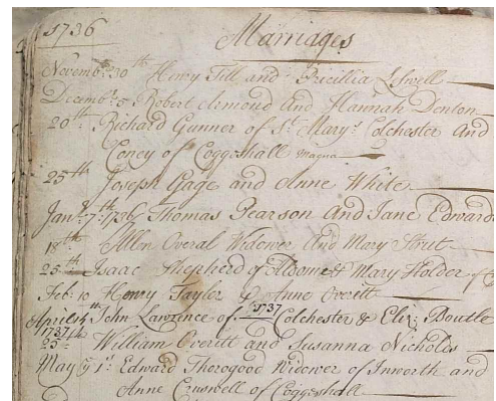 1736
Marriages
Novembr. 30th Henry Tell and Pricillia Lswell
Decembr. 5 Robert Armond And Hannah Denton
20th Richard Gunner of St. Marys Colchester And
Coney of Coggeshall magna
25th Joseph Gage and Anne White
Jany. ye 7th: 1736/7 Thomas Pearson And Jane Edwards
18th Allen Overal Widower And Mary Strut
25th Isaac Shepherd of & Mary Holder of
Feb: 10 Henry Taylor & Anne Overitt
1737
April 14th John Lawrence of Colchester & Eliz: Boutle
1737
25th William Overitt and Susanna Nicholds
May ye 1st. Edward Thorogood Widower of Inworth and
Anne Cruswell of Coggeshall